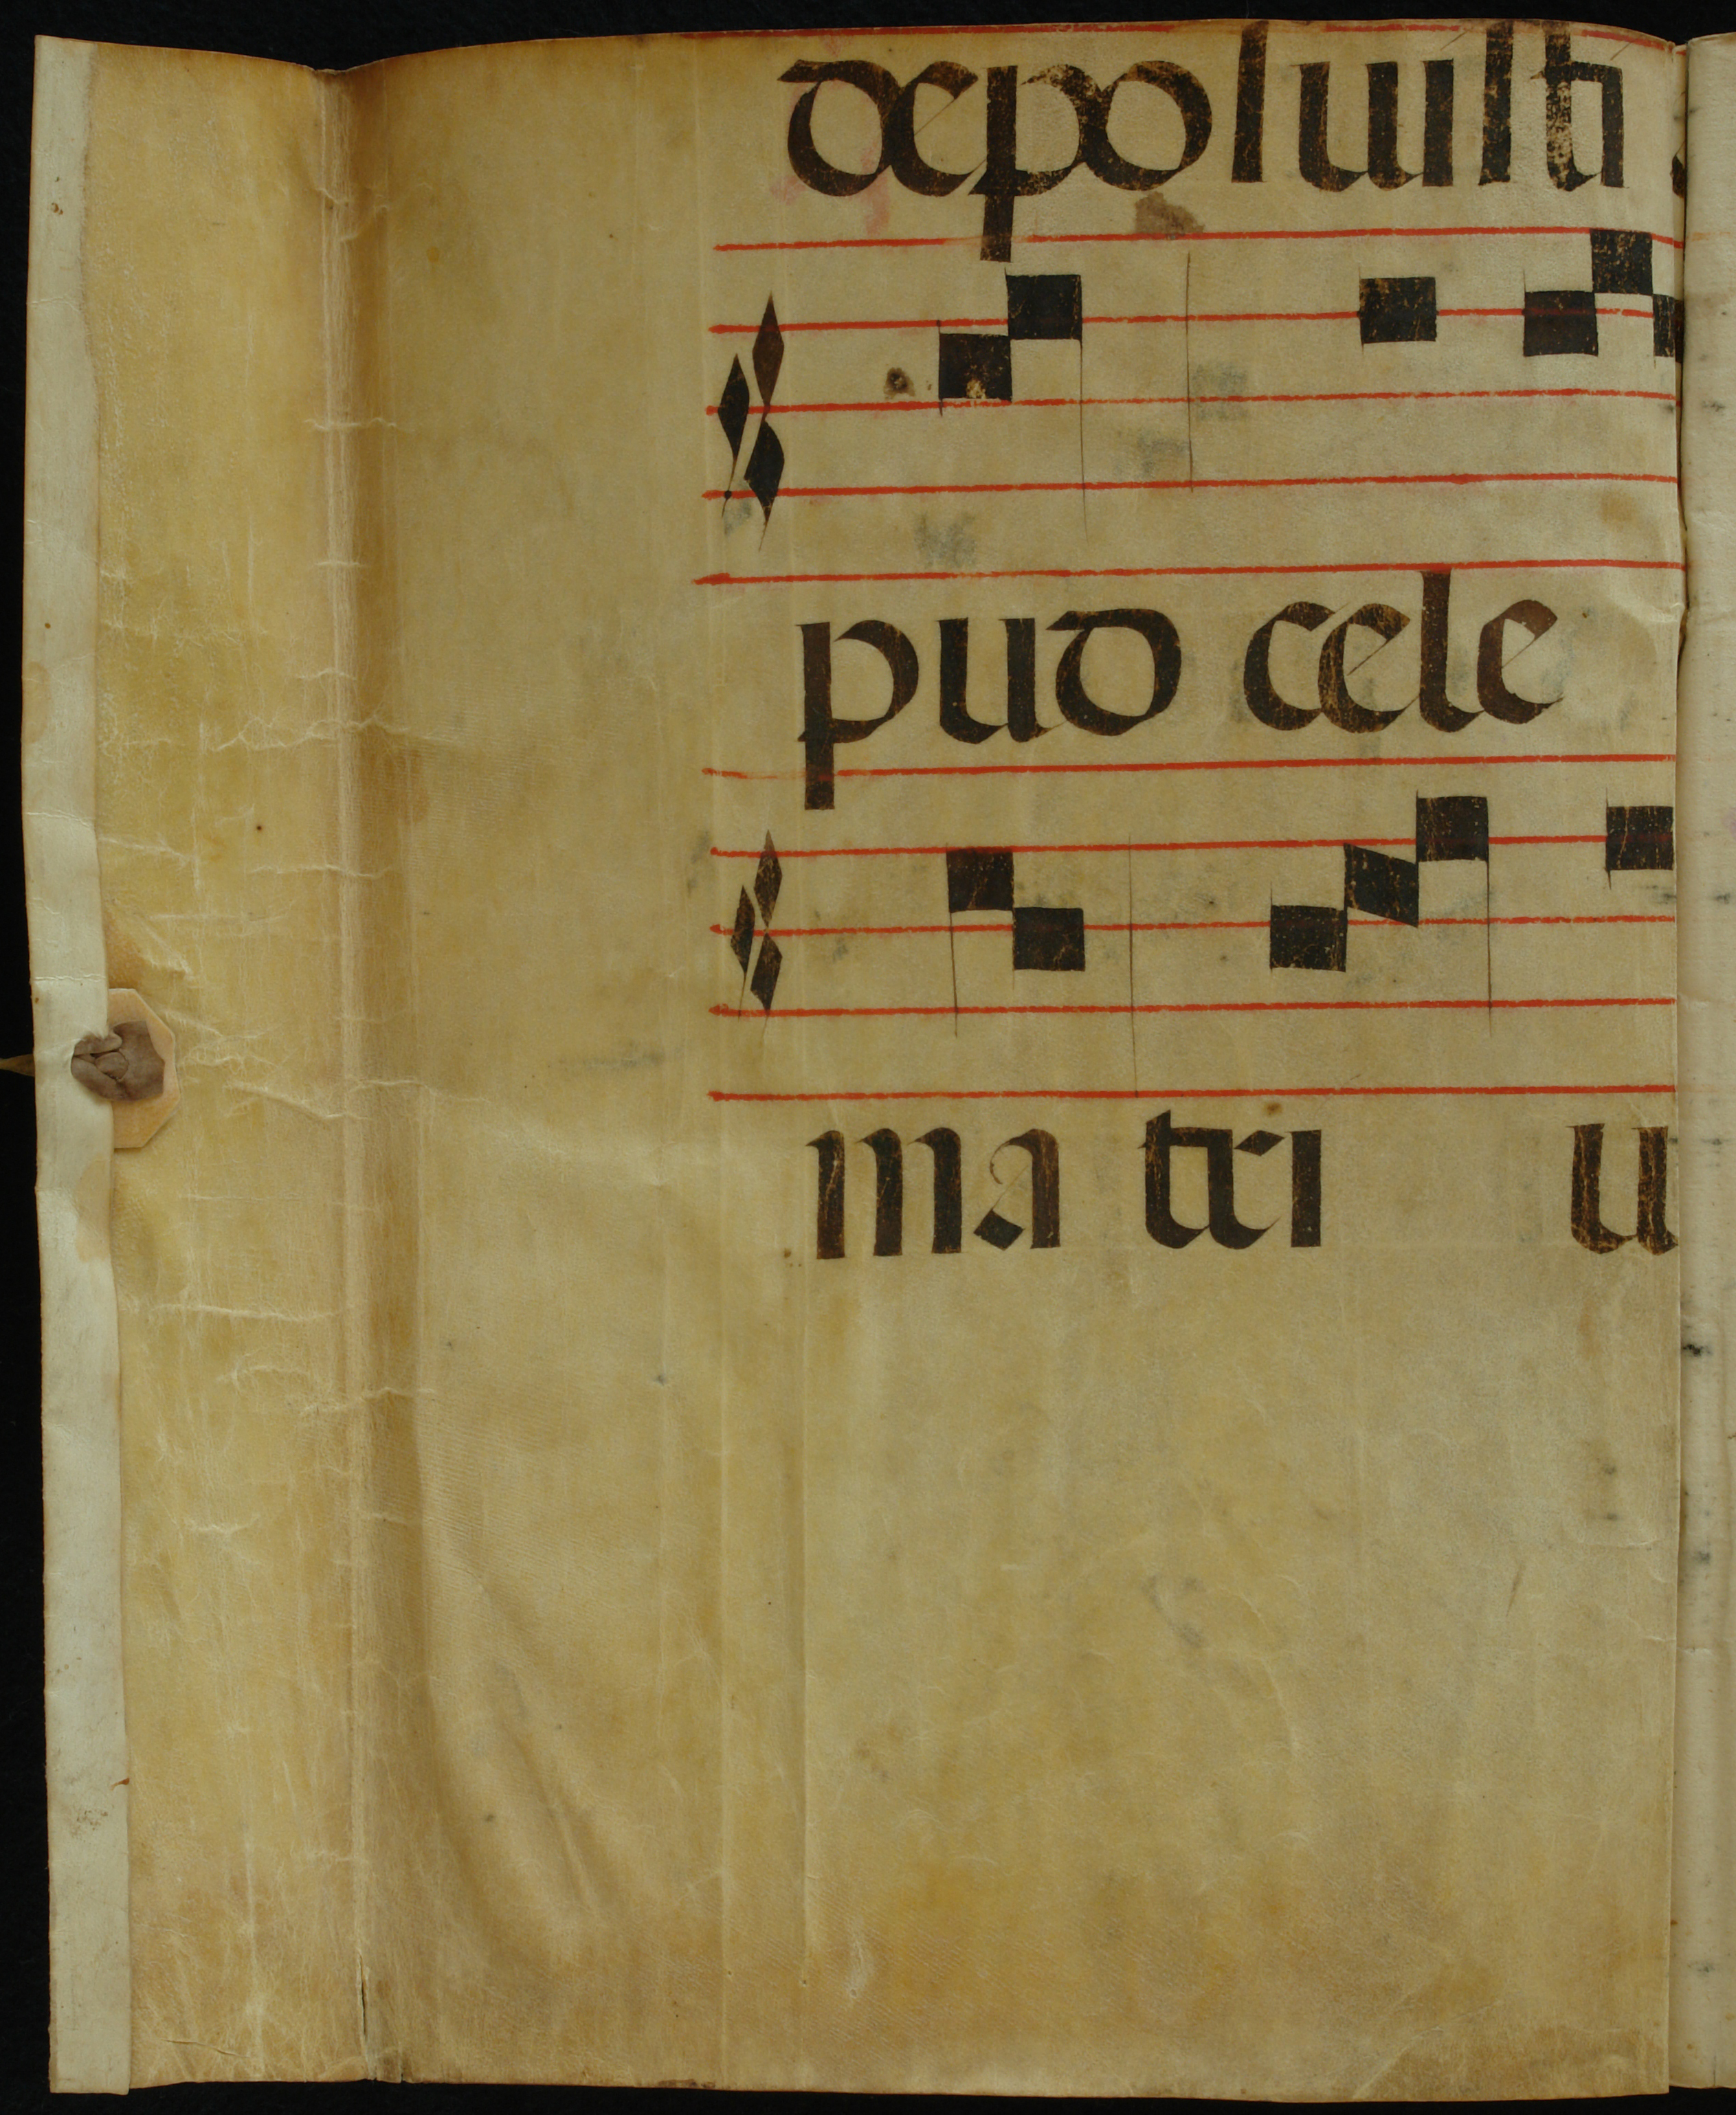 depoſuiſti
pud cele
ma tri u